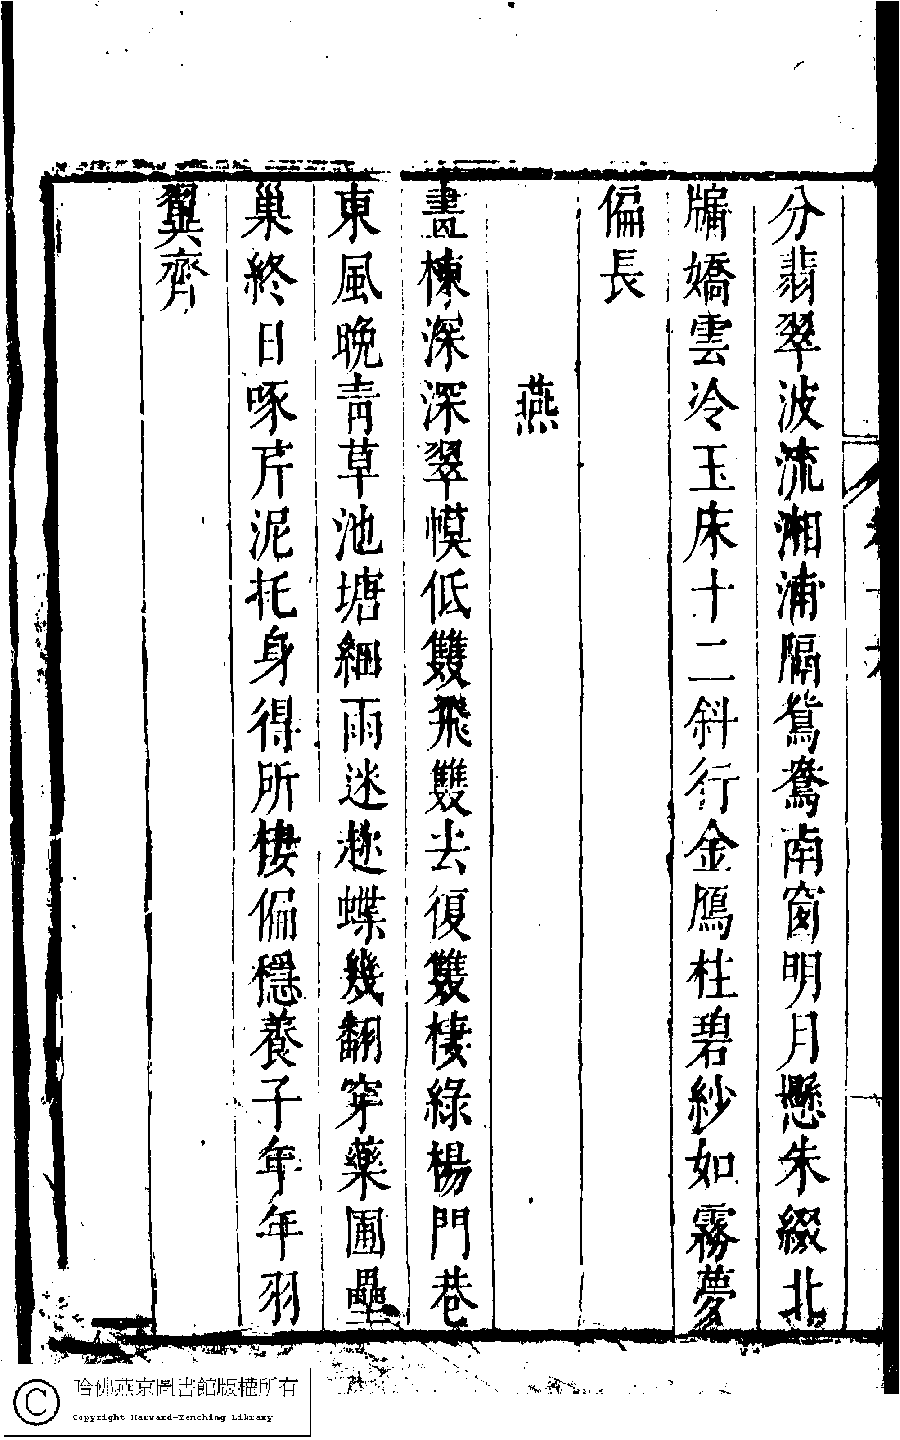 分翡翠波流湘浦隔鴛鴦南窗明月懸朱綴北
牖嬌雲冷玉床十二斜行金鴈柱碧紗如霧夢
偏長
燕
畫棟深深翠幙低雙飛雙去復雙棲綠楊門巷
東風晚青草池塘細雨迷趂蝶幾翻穿藥圃壘
巢終日啄芹泥托身得所棲偏穩養子年年羽
翼齊
哈佛燕京圖書館版權所有
Copyright Harvard-Yenching Library